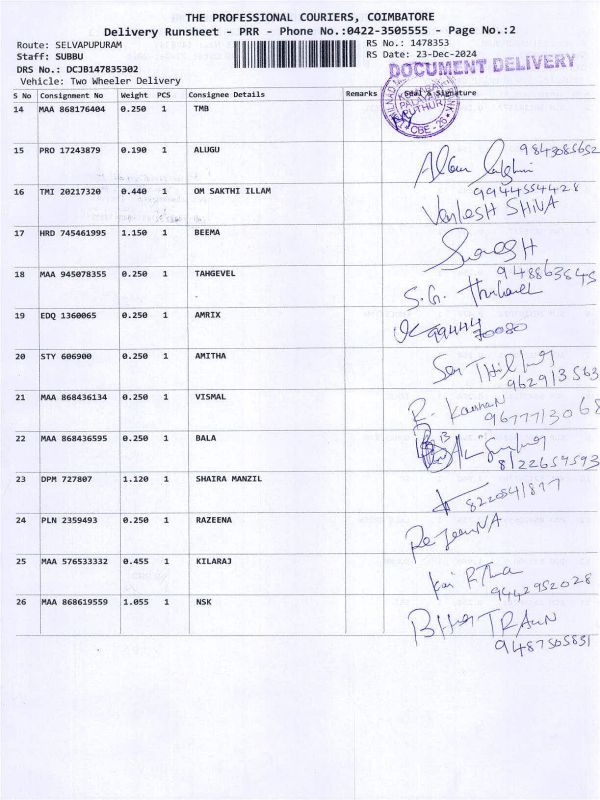 THE PROFESSIONAL COURIERS, COIMBATORE
Delivery Runsheet - PRR - Phone No.:0422-3505555 - Page No.:2
Route: SELVAPUPURAM
RS No.: 1478353
Staff: SUBBU
RS Date: 23-Dec-2024
DRS No.: DCJB147835302
DOCUMENT DELIVERY
Vehicle: Two Wheeler Delivery
S No Consignment No Weight PCS Consignee Details Remarks Seal & Signature
14 MAA 868176404 0.250 1 TMB
CBE - 26
15 PRO 17243879 0.190 1 ALUGU
9843085652
16 TMI 20217320 0.440 1 OM SAKTHI ILLAM
9944554428
Venkesh SHIVA
17 HRD 745461995 1.150 1 BEEMA
18 MAA 945078355 0.250 1 TAHGEVEL
948863645
S.G.
19 EDQ 1360065 0.250 1 AMRIX
99444
70080
20 STY 606900 0.250 1 AMITHA
962913563
21 MAA 868436134 0.250 1 VISMAL
R. Kannan
9677713068
22 MAA 868436595 0.250 1 BALA
8122659593
23 DPM 727807 1.120 1 SHAIRA MANZIL
8220841877
24 PLN 2359493 0.250 1 RAZEENA
RejeenNA
25 MAA 576533332 0.455 1 KILARAJ
9442952028
26 MAA 868619559 1.055 1 NSK
9487505851